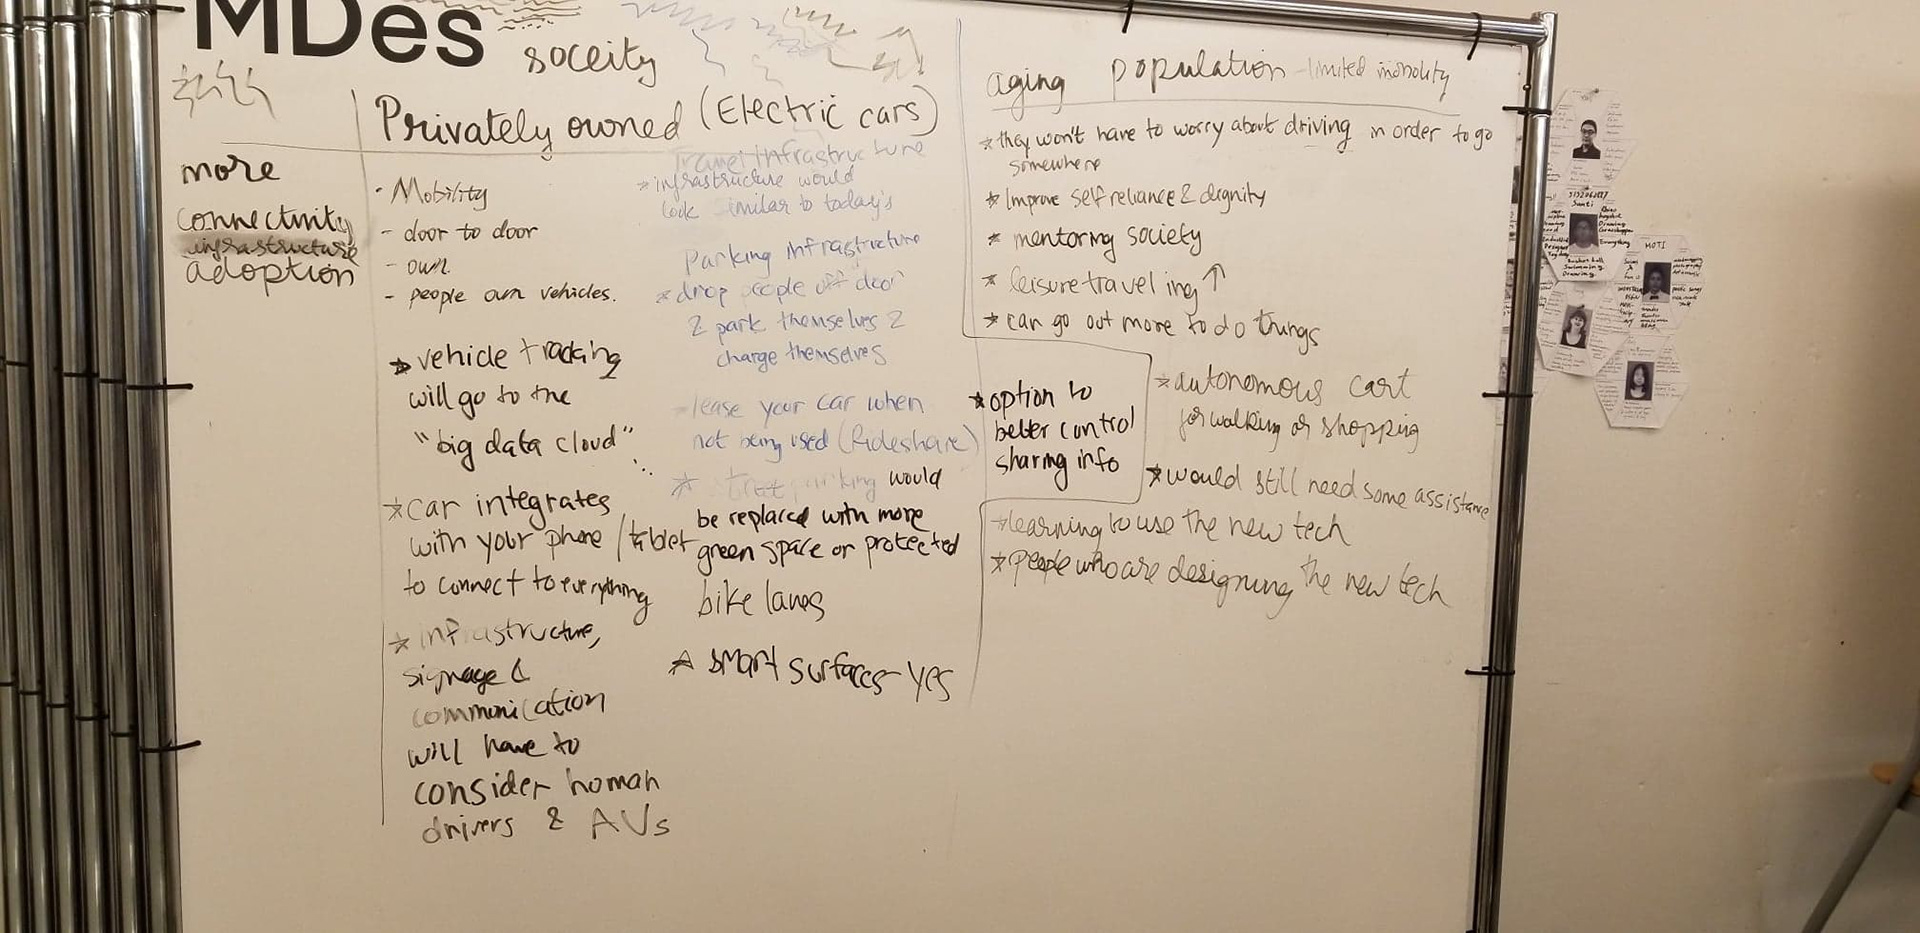 MDes
soceity
more
connectivity
infrastructure
adoption
Privately owned (Electric cars)
· Mobility
- door to door
- own
- people own vehicles.
* vehicle tracking
will go to the
"big data cloud"
* car integrates
with your phone / tablet
to connect to everything
* infrastructure,
signage &
communication
will have to
consider human
drivers & AVs
Travel infrastructure
* infrastructure would
look similar to today's
Parking infrastructure
* drop people off door
& park themselves &
charge themselves
lease your car when
not being used (Rideshare)
* street parking would
be replaced with more
green space or protected
bike lanes
* smart surfaces - yes
aging population - limited
* they won't have to worry about driving in order to go
somewhere
* Improve self reliance & dignity
* mentoring society
* leisure traveling ↑
* can go out more to do things
* option to
better control
sharing info
* autonomous cart
for walking or shopping
* would still need some assistance
* learning to use the new tech
* People who are designing the new tech
Santi
MOTI